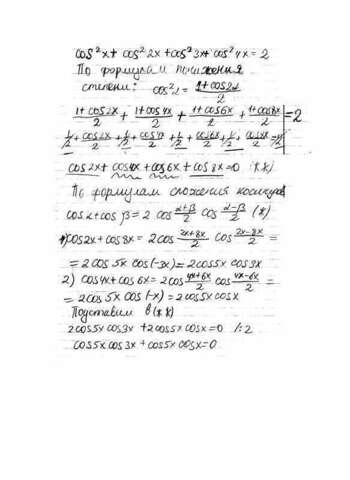 cos²x + cos²2x + cos²3x + cos²4x = 2
По формулам понижения
степени: cos²α = (1+cos2α)/2
(1+cos2x)/2 + (1+cos4x)/2 + (1+cos6x)/2 + (1+cos8x)/2 = 2
1/2 + cos2x/2 + 1/2 + cos4x/2 + 1/2 + cos6x/2 + 1/2 + cos8x/2 =
cos2x + cos4x + cos6x + cos8x = 0 (**)
По формулам сложения косинусов
cosα + cosβ = 2 cos (α+β)/2 cos (α-β)/2 (*)
1) cos2x + cos8x = 2cos (2x+8x)/2 cos (2x-8x)/2 =
= 2cos 5x cos(-3x) = 2cos5x cos3x
2) cos4x + cos6x = 2cos (4x+6x)/2 cos (4x-6x)/2 =
= 2cos 5x cos(-x) = 2cos5x cosx
Подставим в (**)
2cos5x cos3x + 2cos5x cosx = 0 /:2
cos5x cos3x + cos5x cosx = 0